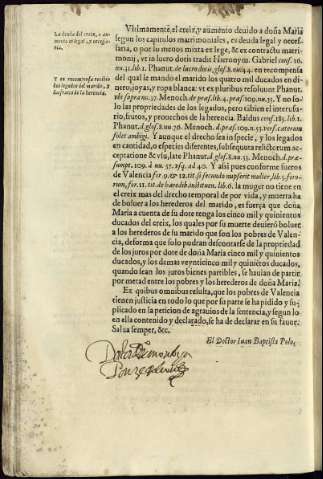 La deuda del creix, o au-
mento es legal, y neceſſa-
ria.
Y en recompenſa recibio
los legados del marido, y
los frutos de la herencia.
Vltimamente, el creix, y aumento deuido a doña Maria
ſegun los capitulos matrimoniales, es deuda legal y neceſ-
ſaria, o por lo menos mixta ex lege, & ex contractu matri-
monij, vt in lucro dotis tradit Hieronym. Gabriel conſ. 16.
nu. 31. lib. 1. Phanut. de lucro dotis, gloſ. 8. nu. 14. en recompenſa
del qual le mandò el marido los quatro mil ducados en di-
nero, joyas, y ropa blanca: vt ex pluribus reſoluunt Phanut.
vbi ſupra nu. 37. Menoch. de præſ. lib. 4. præſ. 109. nu. 35. Y no ſo-
lo las propiedades de los legados, pero tãbien el interuſu-
rio, frutos, y prouechos de la herencia. Baldus conſ. 183. lib. 1.
Phanut. d. gloſ. 8. nu. 70. Menoch. d. præſ. 109. n. 55. verſ. cæterum
ſolet ambigi. Y aunque el derecho ſea in ſpecie, y los legados
en cantidad, o eſpecies diferentes, ſubſequuta reſtitutum ac-
ceptatione & vſu, late Phanut. d. gloſ. 8. nu. 53. Menoch. d. præ-
ſumpt. 109. à nu. 37. vſq. ad 40. Y aſsi pues conforme fueros
de Valencia for. 9. & 12. tit. ſi ſecundo nupſerit mulier, lib. 5. foro-
rum, for. 11. tit. de hæredib. inſtituen. lib. 6. la muger no tiene en
el creix mas del drecho temporal de por vida, y muerta ha
de boluer a los herederos del marido, es fuerça que doña
Maria a cuenta de ſu dote tenga los cinco mil y quinientos
ducados del creix, los quales por ſu muerte deuierõ boluer
a los herederos de ſu marido que ſon los pobres de Valen-
cia, de forma que ſolo podran deſcontarſe de la propriedad
de los juros por dote de doña Maria cinco mil y quinientos
ducados, y los demas veynticinco mil y quiniẽtos ducados,
quando ſean los juros bienes partibles, ſe hauian de partir
por metad entre los pobres y los herederos de doña Maria.
Ex quibus omnibus reſulta, que los pobres de Valencia
tienen juſticia en todo lo que por ſu parte ſe ha pidido y ſu-
plicado en la peticion de agrauios de la ſentencia, y ſegun lo
en ella contenido y declarado, ſe ha de declarar en ſu fauor.
Salua ſemper, &c.
El Doctor Iuan Baptiſta Polo.